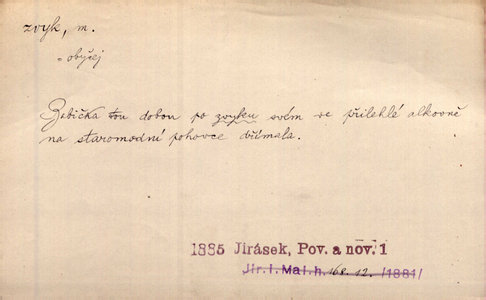 zvyk, m.
= obyčej
Babička tou dobou po zvyku svém ve přilehlé alkovně
na staromodní pohovce dřímala.
1885 Jirásek, Pov. a nov. 1
Jir. I. Mal. h. 168. 12. /1881/